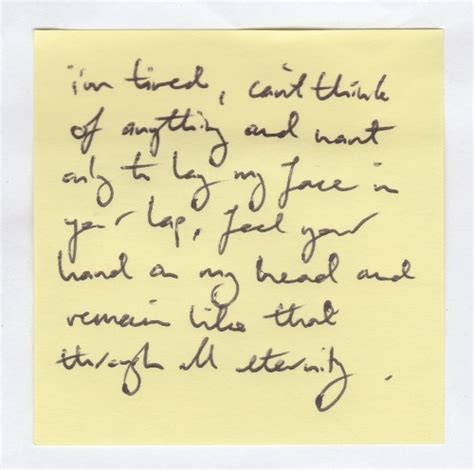 i'm tired, can't think
of anything and want
only to lay my face in
your lap, feel your
hand on my head and
remain like that
through all eternity.